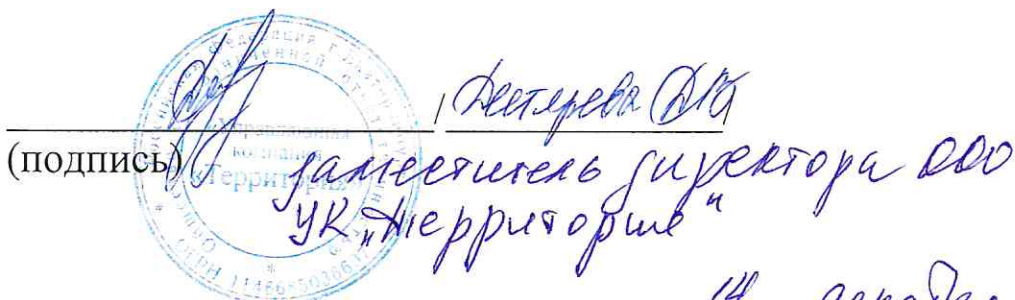 / Дегтярева Д.К.
(подпись)
заместитель директора ООО
УК "Территория"
Управляющая
компания
«Территория»
14 декабря